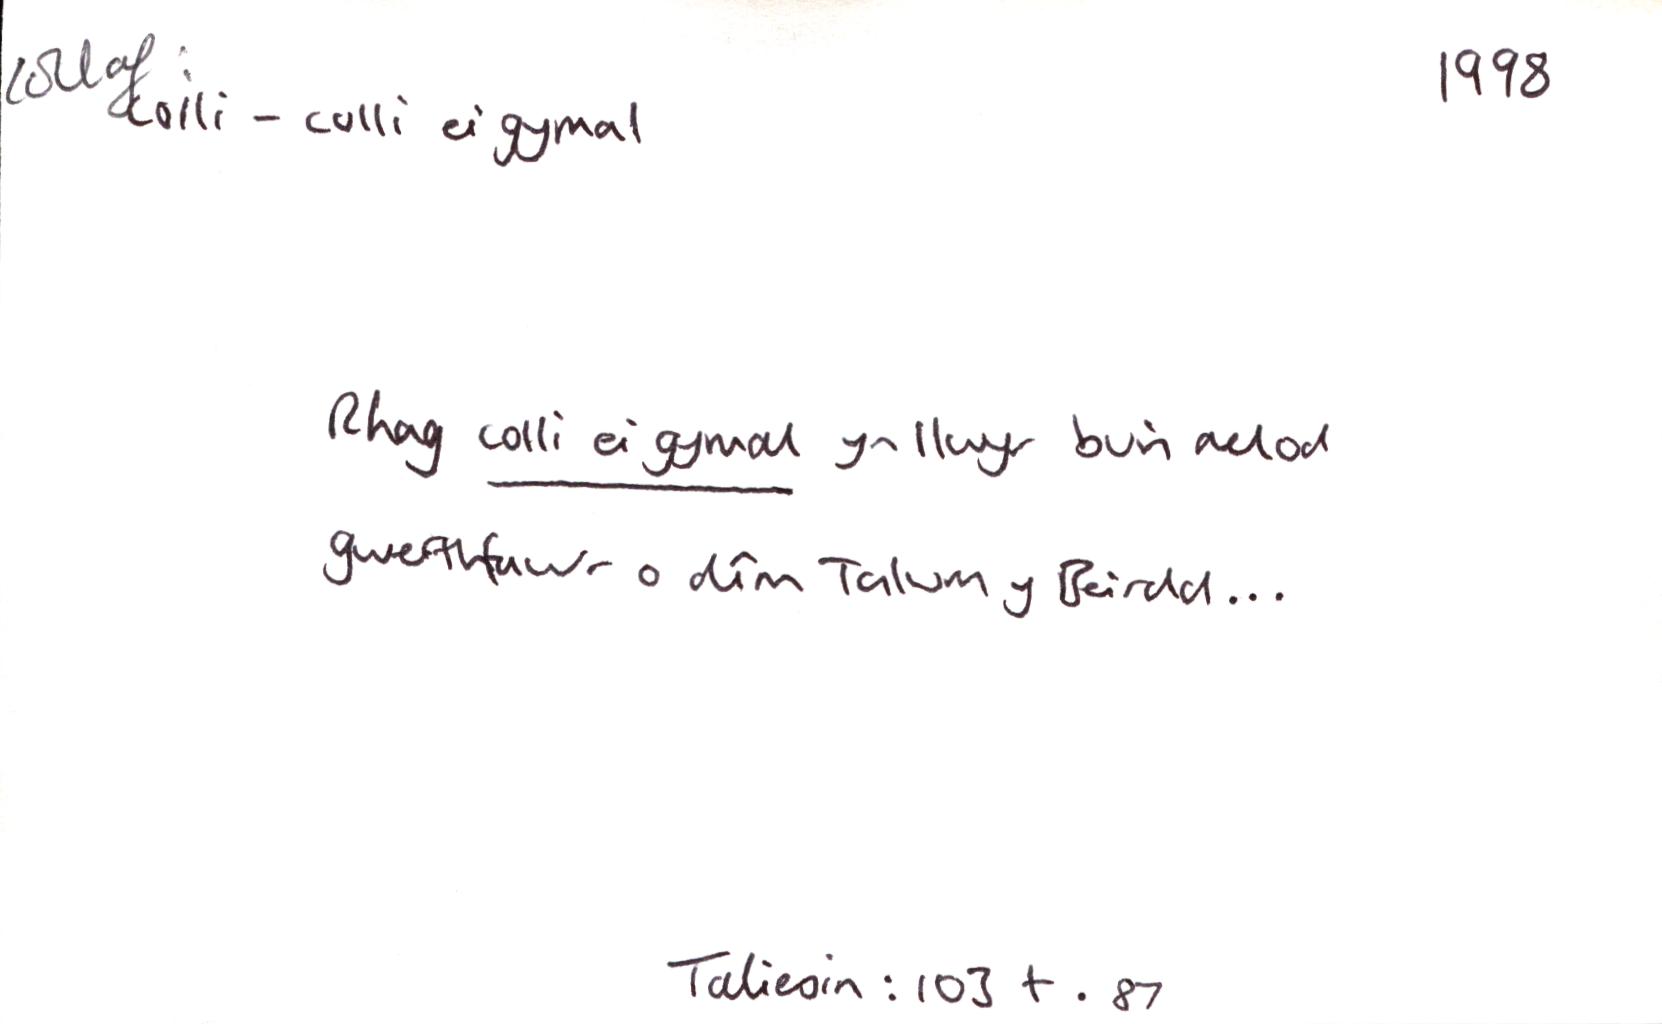 collaf:
1998
colli - colli ei gymal
Rhag colli ei gymal yn llwyr bu'n aelod
gwerthfawr o dîm Talwrn y Beirdd...
Taliesin: 103 t. 87